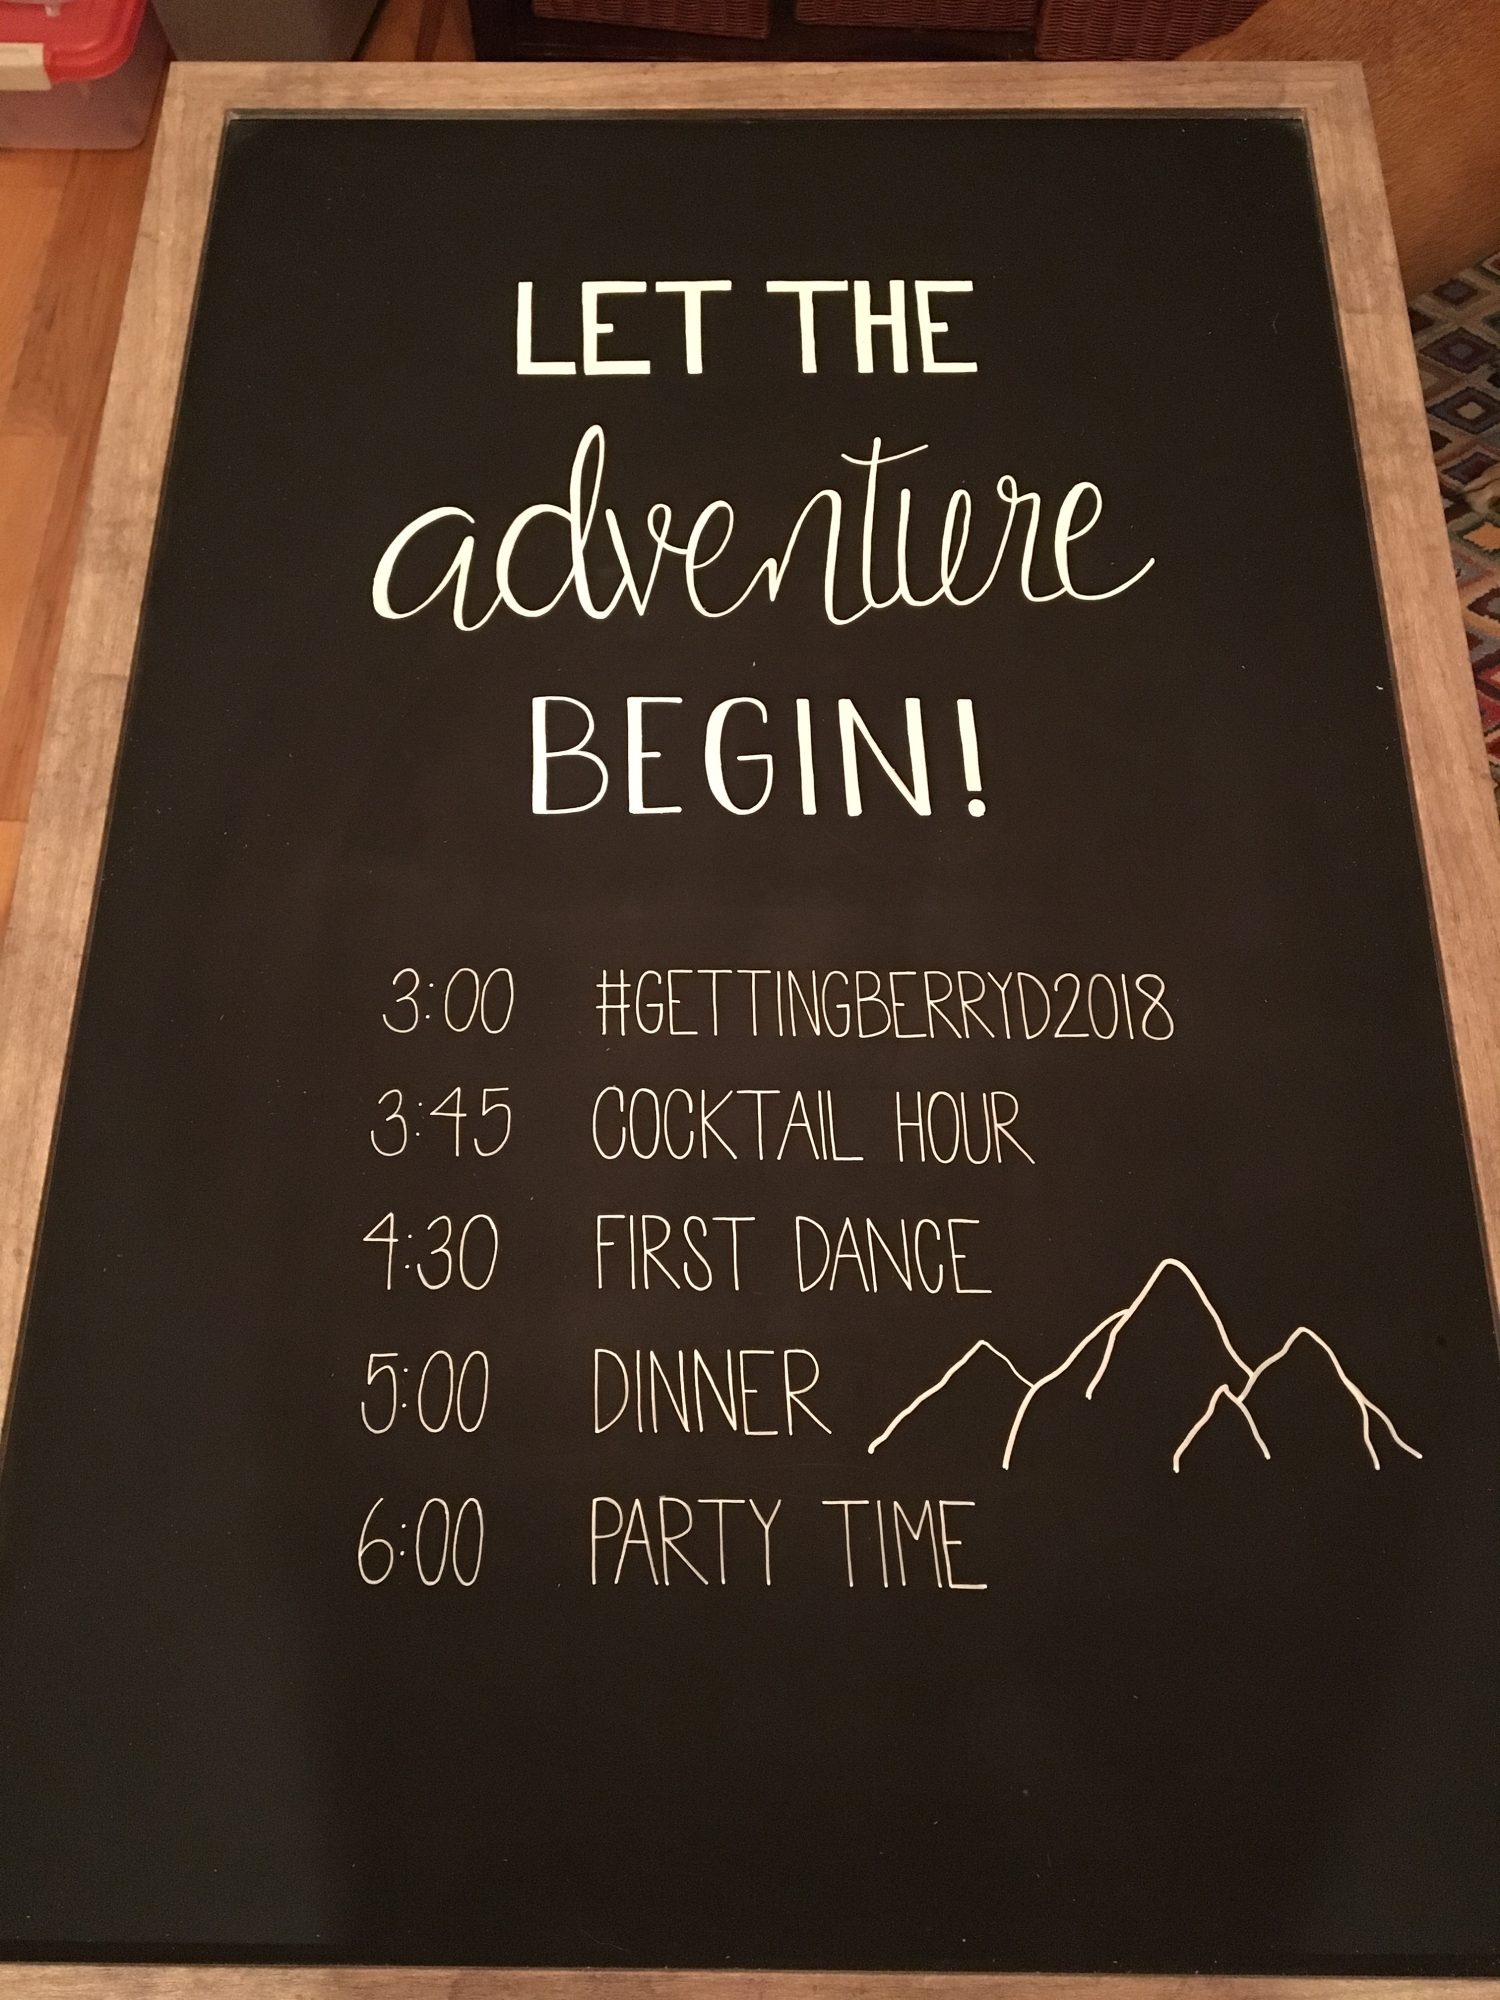 LET THE
adventure
BEGIN!
3:00 #GETTINGBERRYD2018
3:45 COCKTAIL HOUR
4:30 FIRST DANCE
5:00 DINNER
6:00 PARTY TIME